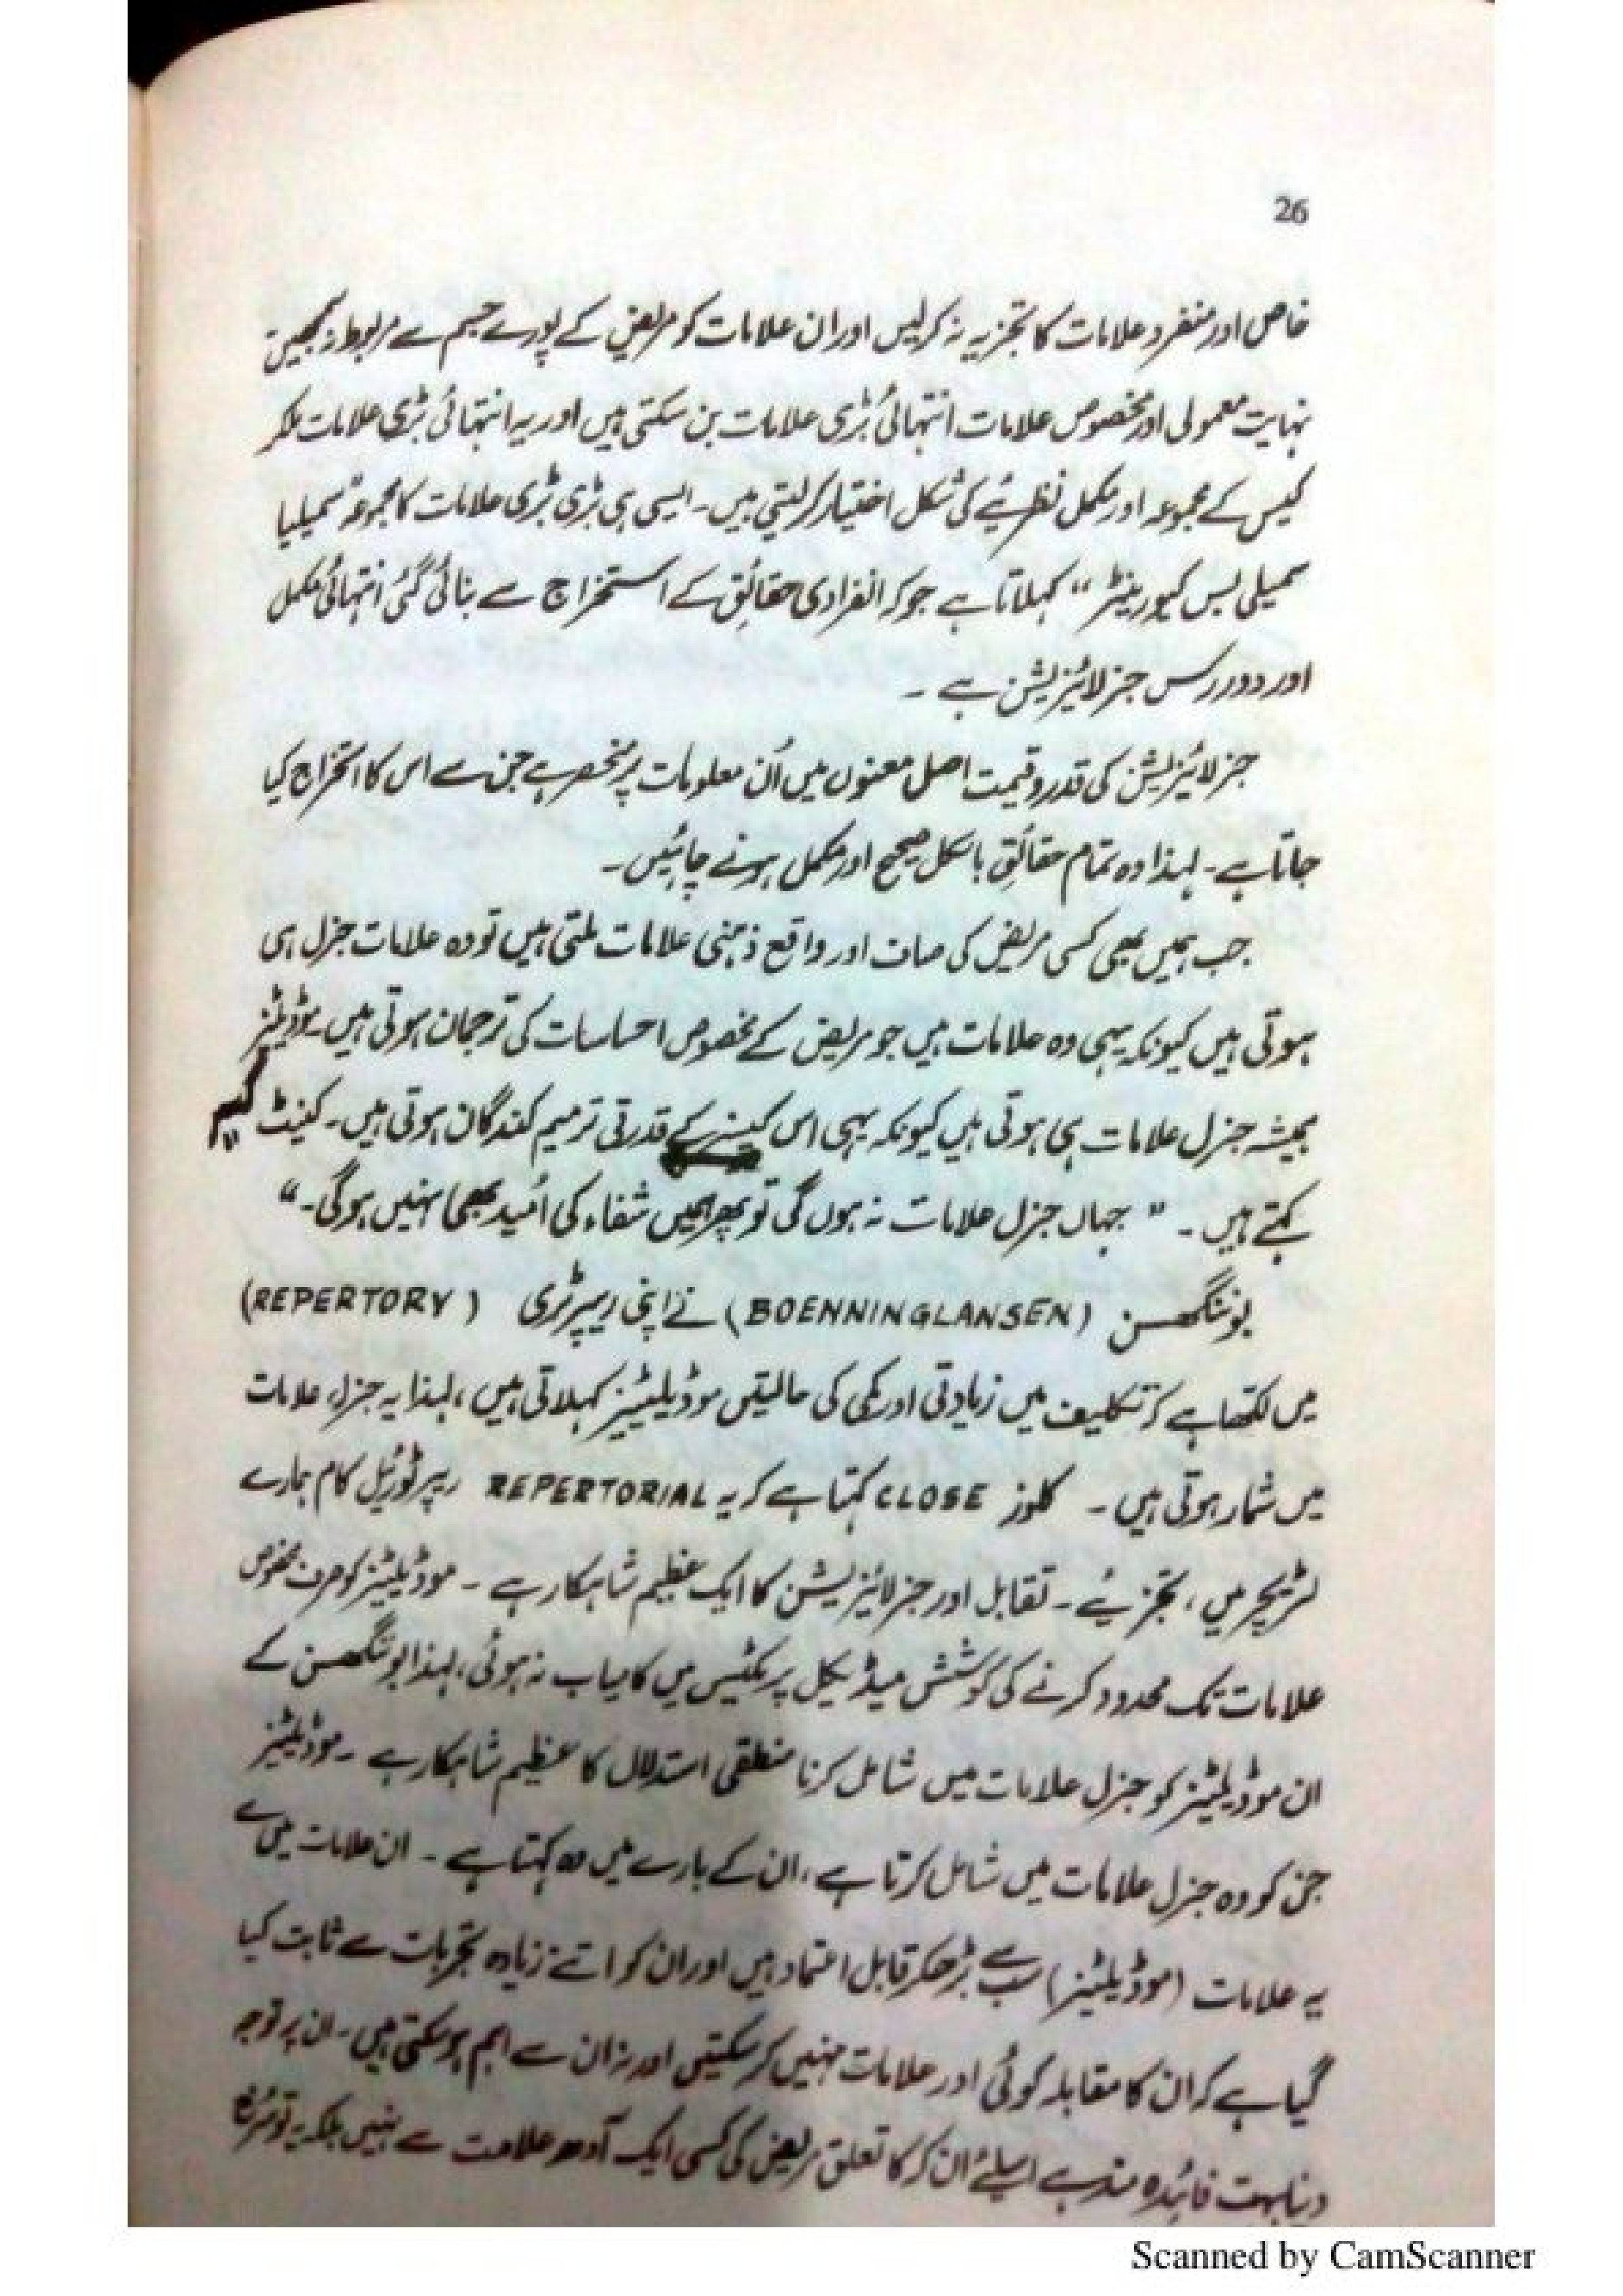 26
خاص اور منفرد علامات کا تجزیہ نہ کرلیں اور ان علامات کو مریض کے پورے جسم سے مربوط نہ سمجھیں
نہایت معمولی اور مخصوص علامات انتہائی بڑی علامات بن سکتی ہیں اور یہ انتہائی بڑی علامات ملکر
کیس کے مجموعہ اور مکمل نظریئے کی شکل اختیار کرلیتی ہیں۔ ایسی ہی بڑی بڑی علامات کا مجموعہ "سمیلیا
سمیلی بس کیورینٹر" کہلاتا ہے جو کہ انفرادی حقائق کے استخراج سے بنائی گئی انتہائی مکمل
اور دور رس جنرلائیزیشن ہے ۔
جنرلائیزیشن کی قدر و قیمت اصل معنوں میں اُن معلومات پر منحصر ہے جن سے اس کا استخراج کیا
جاتا ہے۔ لہذا وہ تمام حقائق بالکل صحیح اور مکمل ہونے چاہئیں۔
جب ہمیں بھی کسی مریض کی صاف اور واقع ذہنی علامات ملتی ہیں تو وہ علامات جنرل ہی
ہوتی ہیں کیونکہ یہی وہ علامات ہیں جو مریض کے مخصوص احساسات کی ترجمان ہوتی ہیں۔ موڈیلٹیز
ہمیشہ جنرل علامات ہی ہوتی ہیں کیونکہ یہی اس کے قدرتی ترمیم کنندگان ہوتی ہیں۔ کینٹ
کہتے ہیں۔ "جہاں جنرل علامات نہ ہوں گی تو پھر ہمیں شفاء کی اُمید بھی نہیں ہوگی۔"
بوننگھسن (BOENNINGLANSEN) نے اپنی ریپرٹری (REPERTORY)
میں لکھا ہے کہ تکلیف میں زیادتی اور کمی کی حالیتں موڈیلیٹیز کہلاتی ہیں، لہذا یہ جنرل علامات
میں شمار ہوتی ہیں ۔ کلوز CLOSE کہتا ہے کہ یہ REPERTORIAL ریپرٹوریل کام ہمارے
لٹریچر میں، تجزیئے ۔ تقابل اور جنرلائیزیشن کا ایک عظیم شاہکار ہے ۔ موڈیلیٹیز کو صرف مخصوص
علامات تک محدود کرنے کی کوشش میڈیکل پریکٹیس میں کامیاب نہ ہوئی، لہذا بوننگھسن کے
ان موڈیلیٹیز کو جنرل علامات میں شامل کرنا منطقی استدلال کا عظیم شاہکار ہے ۔ موڈیلٹیز
جن کو وہ جنرل علامات میں شامل کرتا ہے، ان کے بارے میں وہ کہتا ہے ۔ ان علامات میں سے
یہ علامات (موڈیلیٹیز) سب سے بڑھکر قابل اعتماد ہیں اور ان کو اتنے زیادہ تجربات سے ثابت کیا
گیا ہے کہ ان کا مقابلہ کوئی اور علامات نہیں کر سکتیں اور نہ ان سے اہم ہو سکتی ہیں۔ ان پر توجہ
دینا بہت فائدہ مند ہے اسلئے ان کا تعلق مریض کی کسی ایک آدھ علامت سے نہیں بلکہ یہ تو
Scanned by CamScanner